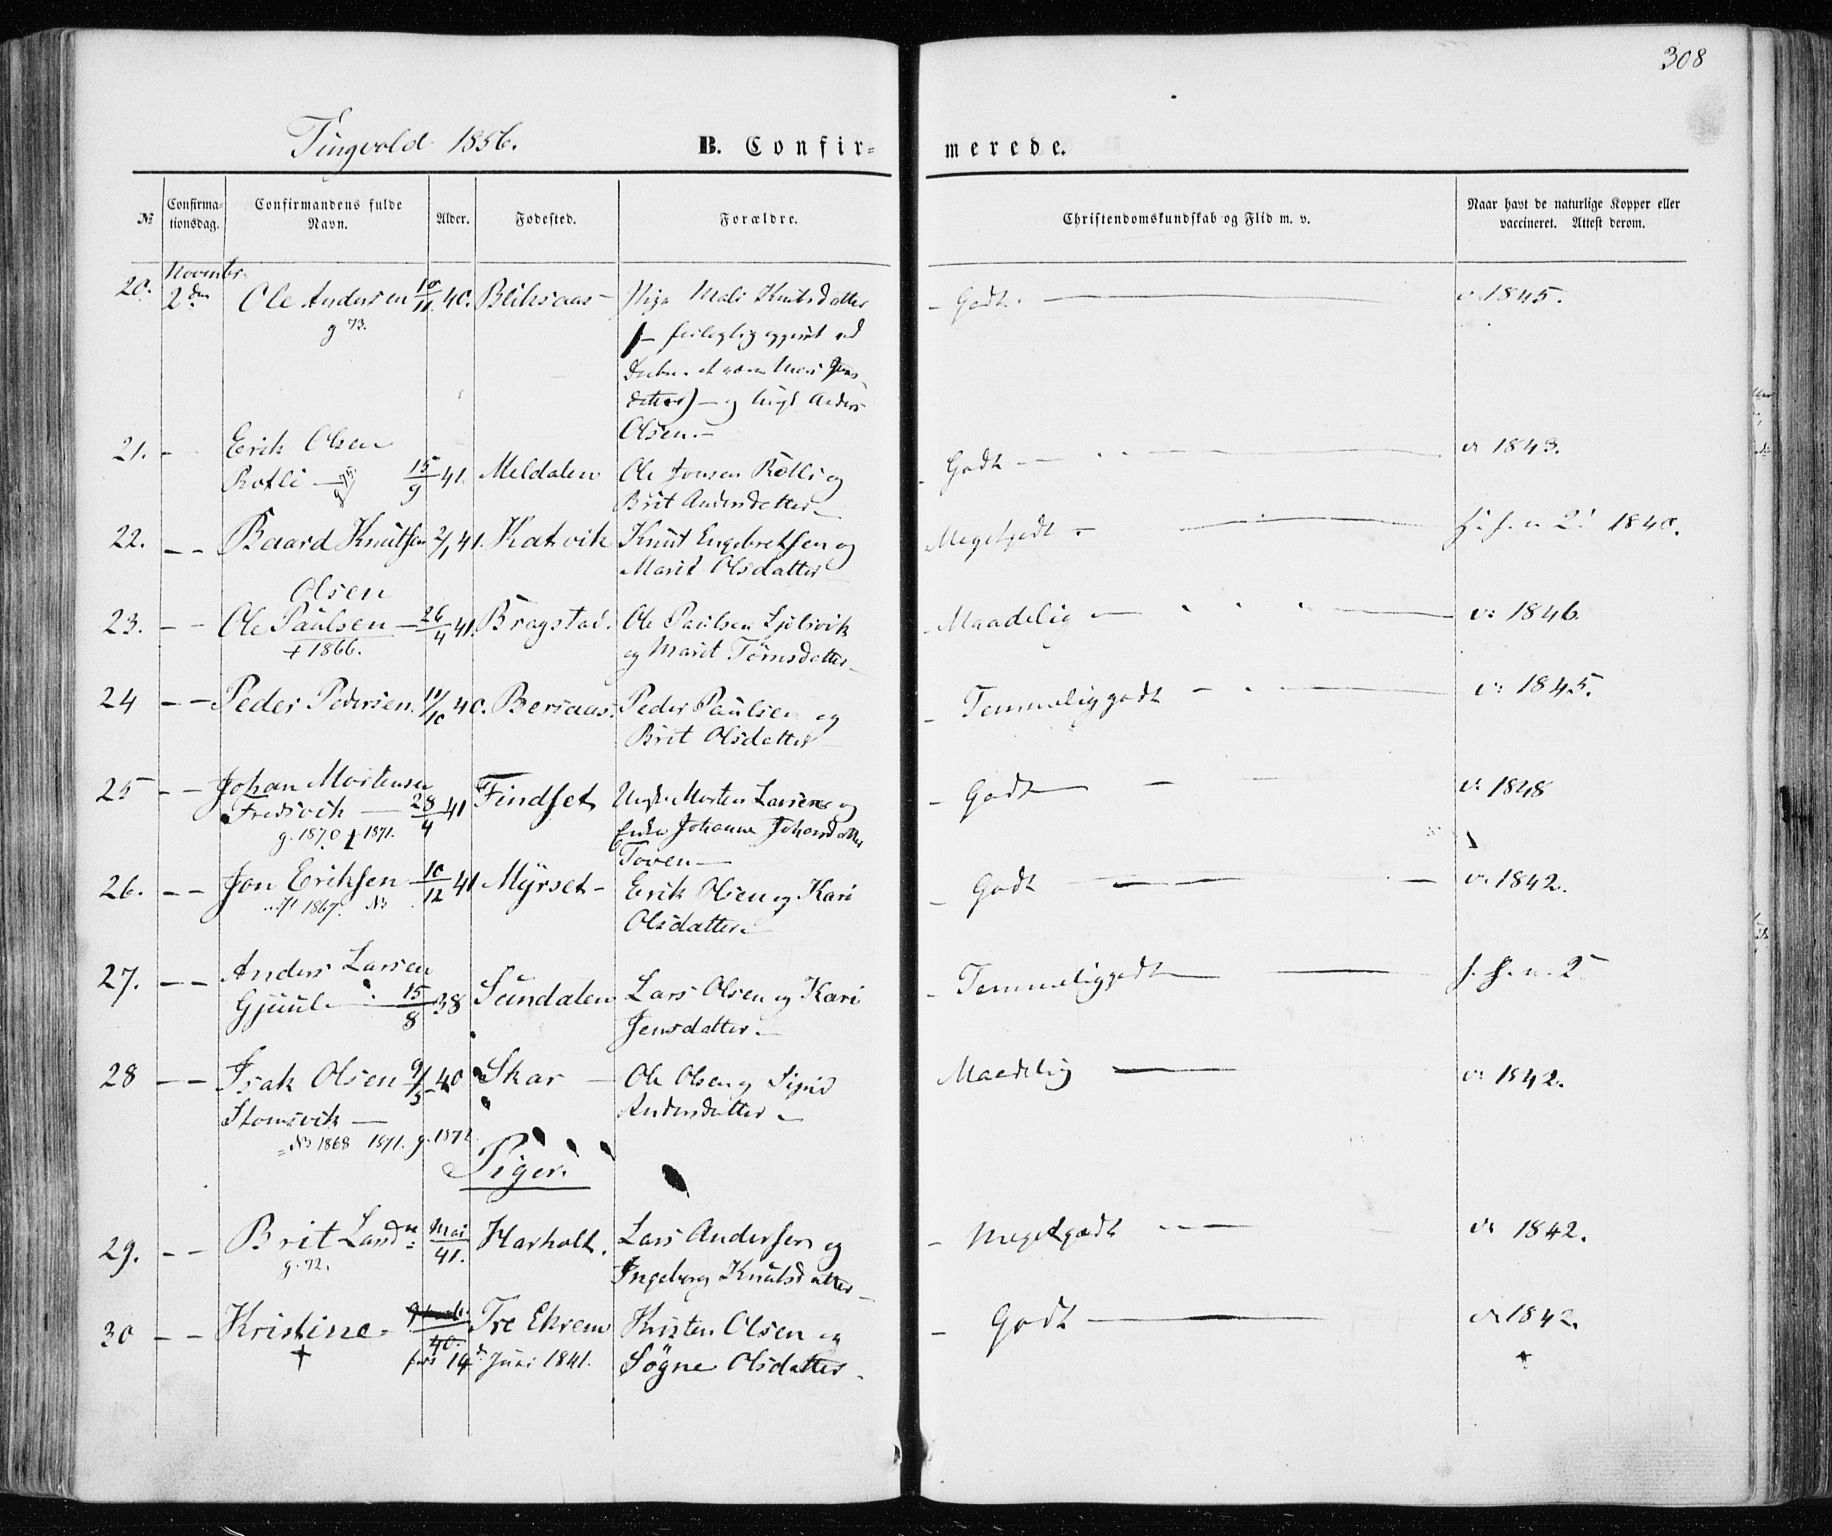 308
Tingvold 1856.
B. Confir= merede.
№ Confirma=tionsdag. Confirmandens fulde Navn. Alder. Fødested. Forældre. Christendomskundskab og Flid m. v. Naar havt de naturlige Kopper eller vaccineret. Attest derom.
20. Novembr. 2den Ole Andersen 10/11 40. Bliksaas – Pige Mali Knutsdatter – Godt. – v. 1845.
g 73.
Daaben at være
datter) – og Ungk Anders
Olsen. –
21. – Erik Olsen
Rotli – 15/9 41. Meldalen Ole Jonsen Rotli og – Godt – v. 1843.
Brit Andersdatter –
22. – – Baard Knutsen 2/1 41. Katvik Knut Engebretsen og Megetgodt – 1840.
Marit Olsdatter
Olsen
23. – – Ole Paulsen – 26/4 41. Bragstad. Ole Paulsen – Maadelig – v: 1846.
+ 1866. og Marit
24 – – Peder Pedersen. 11/10 40. Bersaas. Peder Paulsen og – Temmeliggodt – v: 1845.
Brit Olsdatter –
25 – – Johan Mortensen
Fredsvik – 28/4 41 Findset Ungk. Morten Larsen og – Godt – v. 1848
g. 1870 + 1871. Enke Johanne Johansdatter
Toven –
26. – – Jon Eriksen 10/12 41 Myrset – Erik Olsen og Kari – Godt – v. 1842.
1867. Olsdatter. –
27. – – Anders Larsen
Gjuul – 15/8 38 Sundalen Lars Olsen og Kari – Temmeliggodt –
Jensdatter. –
28 – – Isak Olsen 9/5 40 Skar – Ole Olsen og Sigrid Maadelig – v: 1842.
Stomsvik – Andersdatter. –
1868 1871. g. 1872.
Piger.
29. – – Brit Larsdn Mai 41. Harholt. Lars Andersen og – Megetgodt – v: 1842.
g. 72. Ingeborg Knutsdatter –
30 – – Kristine – 40. Tre Ekrem Kristen Olsen og – Godt – v. 1842.
+ 14d: Juni 1841. Søgne Olsdatter.